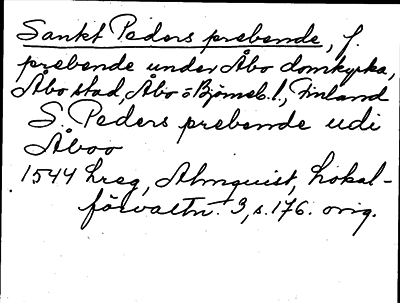 Sankt Peders prebende, f.
prebende under Åbo domkyrka,
Åbo stad, Åbo o Björneb. l., Finland
S. Peders prebende udi
Åboo
1544 hreg, Almquist, Lokal-
förvaltn. 3, s. 176. orig.